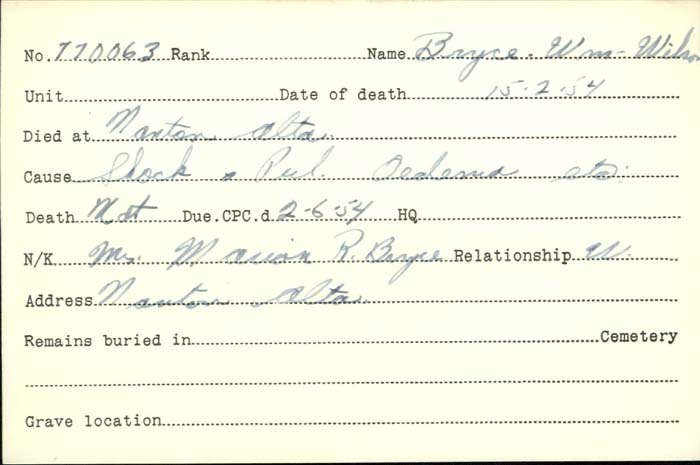 No. 770063 Rank Name Bryce. Wm. Wilson
Unit Date of death 15-2-54
Died at Nanton Alta.
Cause Shock & Pul. Oedema etc.
Death Not Due. CPC.d 2-6-54 HQ
N/K Mrs. Marion R. Bryce Relationship W.
Address Nanton Alta.
Remains buried in Cemetery
Grave location